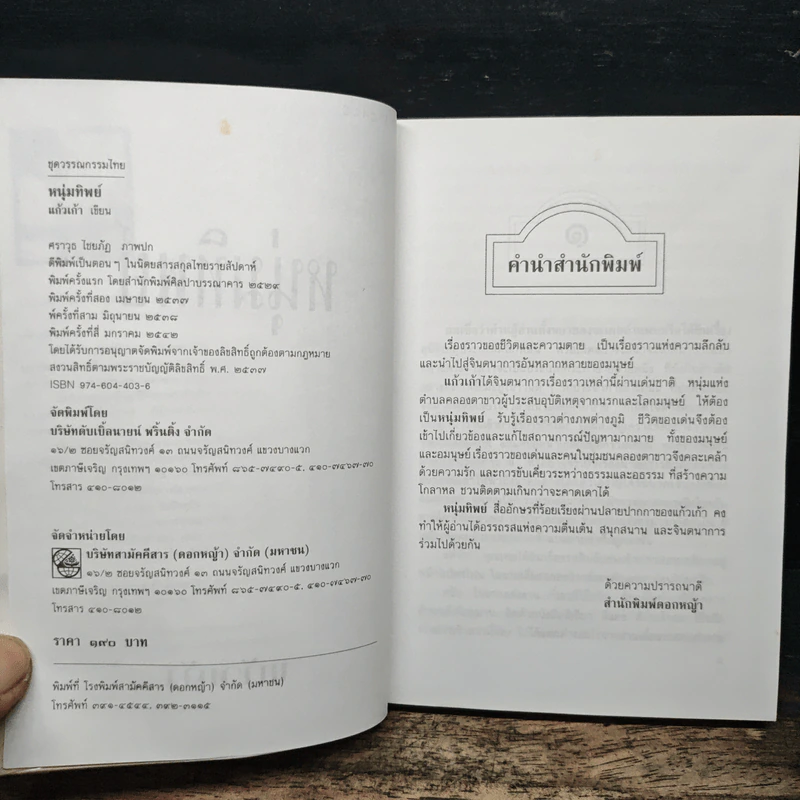 ชุดวรรณกรรมไทย
หนุ่มทิพย์
แก้วเก้า เขียน
ศราวุธ ไชยภัฏ ภาพปก
ตีพิมพ์เป็นตอนๆ ในนิตยสารสกุลไทยรายสัปดาห์
พิมพ์ครั้งแรก โดยสำนักพิมพ์ศิลปาบรรณาคาร ๒๕๒๙
พิมพ์ครั้งที่สอง เมษายน ๒๕๓๗
พ์ครั้งที่สาม มิถุนายน ๒๕๓๘
พิมพ์ครั้งที่สี่ มกราคม ๒๕๔๒
โดยได้รับการอนุญาตจัดพิมพ์จากเจ้าของลิขสิทธิ์ถูกต้องตามกฎหมาย
สงวนสิทธิ์ตามพระราชบัญญัติลิขสิทธิ์ พ.ศ. ๒๕๓๗
ISBN 974-604-403-6
จัดพิมพ์โดย
บริษัทดับเบิ้ลนายน์ พริ้นติ้ง จำกัด
๑๖/๒ ซอยจรัญสนิทวงศ์ ๑๓ ถนนจรัญสนิทวงศ์ แขวงบางแวก
เขตภาษีเจริญ กรุงเทพฯ ๑๐๑๖๐ โทรศัพท์ ๘๖๕-๗๔๙๐-๕, ๔๑๐-๗๔๖๗-๗๐
โทรสาร ๔๑๐-๘๐๑๒
จัดจำหน่ายโดย
บริษัทสามัคคีสาร (ดอกหญ้า) จำกัด (มหาชน)
๑๖/๒ ซอยจรัญสนิทวงศ์ ๑๓ ถนนจรัญสนิทวงศ์ แขวงบางแวก
เขตภาษีเจริญ กรุงเทพฯ ๑๐๑๖๐ โทรศัพท์ ๘๖๕-๗๔๙๐-๕, ๔๑๐-๗๔๖๗-๗๐
โทรสาร ๔๑๐-๘๐๑๒
ราคา ๑๙๐ บาท
พิมพ์ที่ โรงพิมพ์สามัคคีสาร (ดอกหญ้า) จำกัด (มหาชน)
โทรศัพท์ ๓๙๑-๔๕๔๔, ๓๙๒-๓๑๑๕
คำนำสำนักพิมพ์
เรื่องราวของชีวิตและความตาย เป็นเรื่องราวแห่งความลึกลับ
และนำไปสู่จินตนาการอันหลากหลายของมนุษย์
แก้วเก้าได้จินตนาการเรื่องราวเหล่านี้ผ่านเด่นชาติ หนุ่มแห่ง
ตำบลคลองตาขาวผู้ประสบอุบัติเหตุจากนรกและโลกมนุษย์ ให้ต้อง
เป็นหนุ่มทิพย์ รับรู้เรื่องราวต่างภพต่างภูมิ ชีวิตของเด่นจึงต้อง
เข้าไปเกี่ยวข้องและแก้ไขสถานการณ์ปัญหามากมาย ทั้งของมนุษย์
และอมนุษย์ เรื่องราวของเด่นและคนในชุมชนคลองตาขาวจึงคละเคล้า
ด้วยความรัก และการขับเคี่ยวระหว่างธรรมและอธรรม ที่สร้างความ
โกลาหล ชวนติดตามเกินกว่าจะคาดเดาได้
หนุ่มทิพย์ สื่ออักษรที่ร้อยเรียงผ่านปลายปากกาของแก้วเก้า คง
ทำให้ผู้อ่านได้อรรถรสแห่งความตื่นเต้น สนุกสนาน และจินตนาการ
ร่วมไปด้วยกัน
ด้วยความปรารถนาดี
สำนักพิมพ์ดอกหญ้า